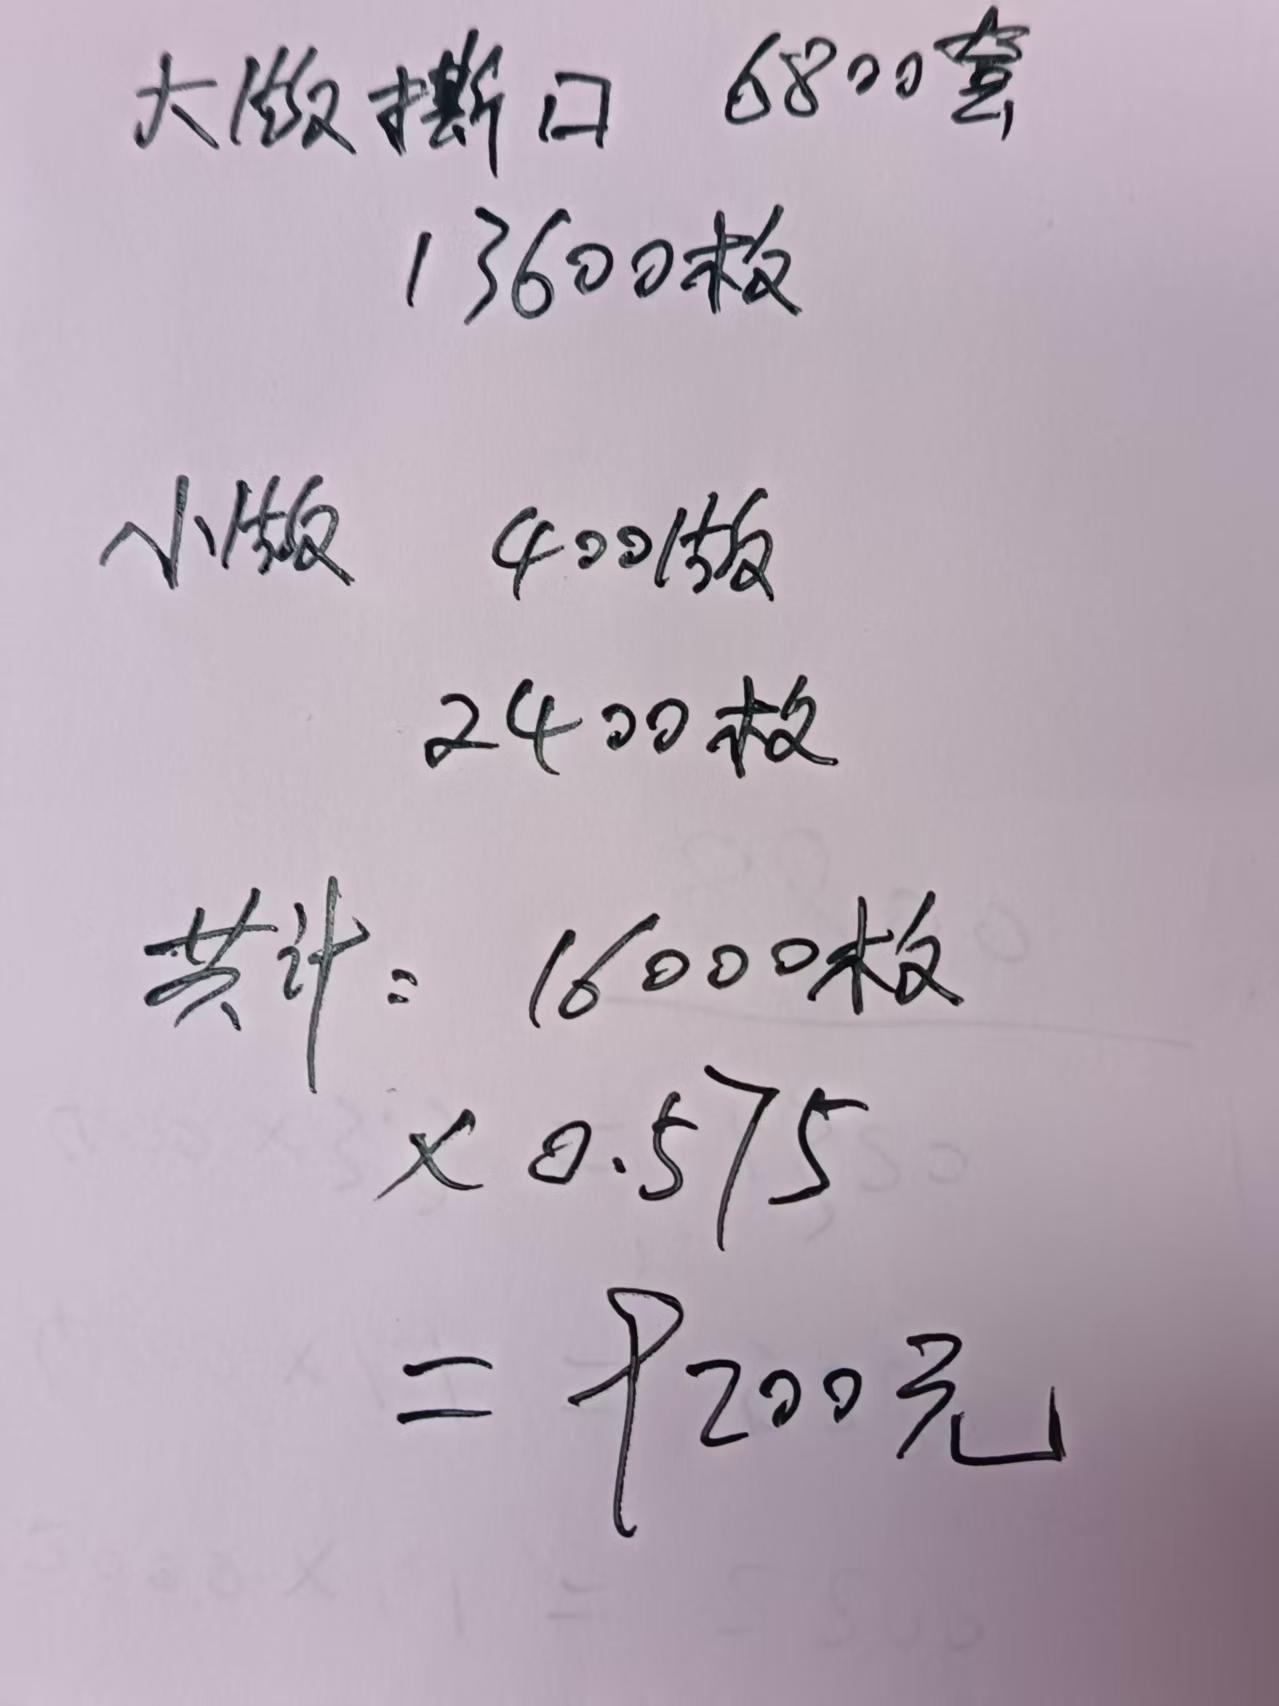 大版撕口 6800套
13600枚
小版 400版
2400枚
共计: 16000枚
× 0.575
= 9200元